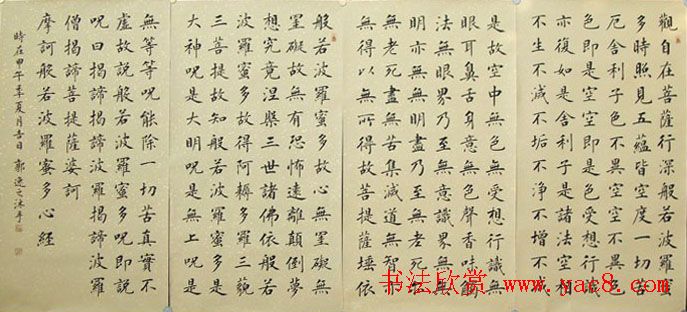 觀自在菩薩行深般若波羅蜜
多時照見五蘊皆空度一切苦
厄舍利子色不異空空不異色
色即是空空即是色受想行識
亦復如是舍利子是諸法空相
不生不滅不垢不淨不增不減
是故空中無色無受想行識無
眼耳鼻舌身意無色聲香味觸
法無眼界乃至無意識界無無
明亦無無明盡乃至無老死亦
無老死盡無苦集滅道無智亦
無得以無所得故菩提薩埵依
般若波羅蜜多故心無罣礙無
罣礙故無有恐怖遠離顛倒夢
想究竟涅槃三世諸佛依般若
波羅蜜多故得阿耨多羅三藐
三菩提故知般若波羅蜜多是
大神呪是大明呪是無上呪是
無等等呪能除一切苦真實不
虛故說般若波羅蜜多呪即說
呪曰揭諦揭諦波羅揭諦波羅
僧揭諦菩提薩婆訶
摩訶般若波羅蜜多心經
時在甲午季夏月吉日郭逸文沐手
书法欣赏 www.yac8.com